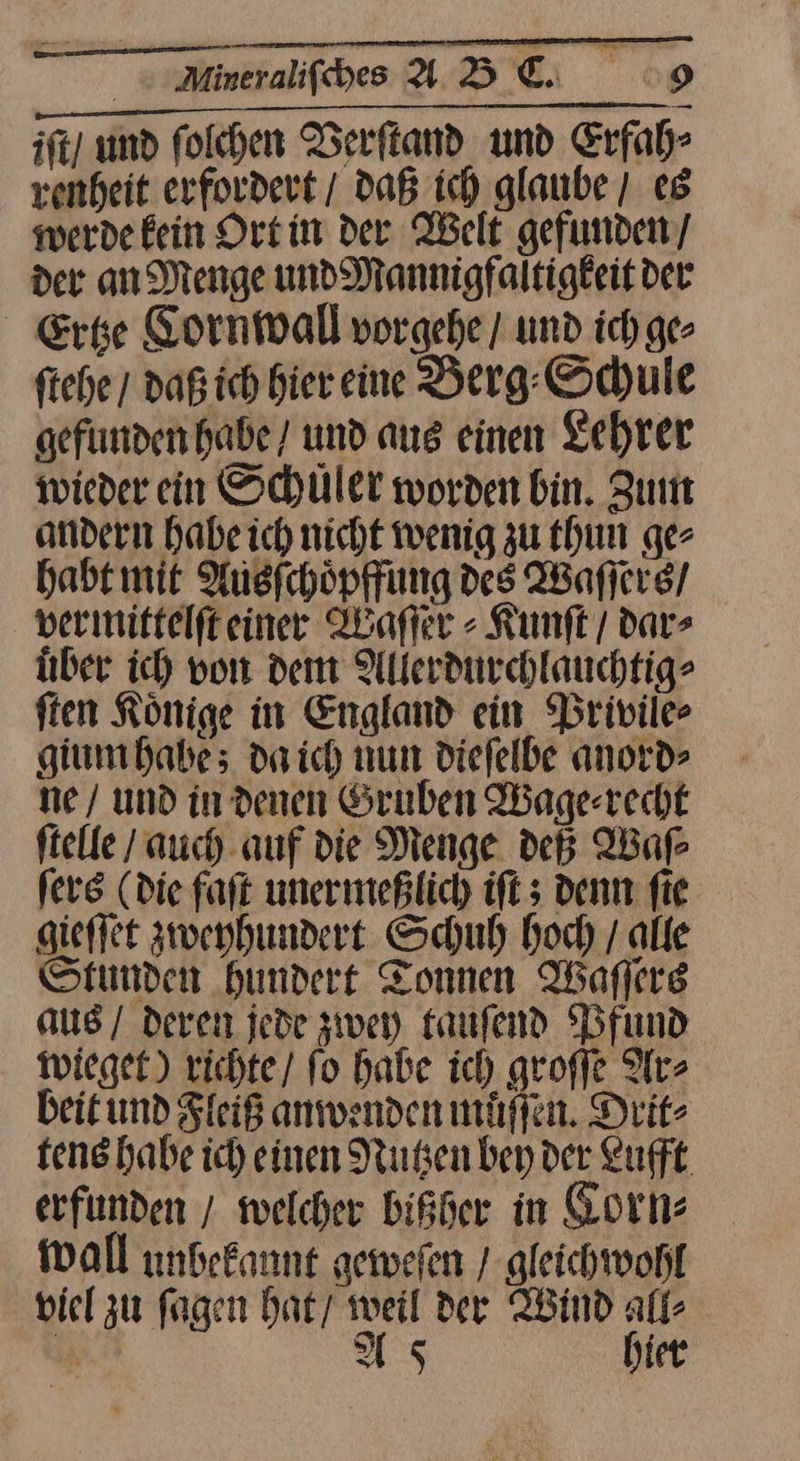 Mineraliſches A B C. 9
iſt/ und ſolchen Verſtand und Erfah⸗
renheit erfordert / daß ich glaube / es
werde kein Ort in der Welt gefunden /
der an Menge und Mannigfaltigkeit der
Ertze Cornwall vorgehe / und ich ge⸗
ſtehe / daß ich hier eine Berg⸗Schule
gefunden habe / und aus einen Lehrer
wieder ein Schuͤler worden bin. Zum
andern habe ich nicht wenig zu thun ge⸗
habt mit Ausſchoͤpffung des Waſſers/
vermittelſt einer Waſſer ⸗ Kunſt / dar⸗
uͤber ich von dem Allerdurchlauchtig⸗
ſten Koͤnige in England ein Privile⸗
gium habe; da ich nun dieſelbe anord⸗
ne / und in denen Gruben Wage⸗recht
ſtelle / auch auf die Menge deß Waſ⸗
ſers (die faſt unermeßlich iſt; denn ſie
gieſſet zweyhundert Schuh hoch / alle
Stunden hundert Tonnen Waſſers
aus / deren jede zwey tauſend Pfund
wieget) richte / ſo habe ich groſſe Ar⸗
beit und Fleiß anwenden muͤſſen. Drit⸗
tens habe ich einen Nutzen bey der Lufft
erfunden / welcher bißher in Corn⸗
wall unbekannt geweſen / gleichwohl
viel zu ſagen hat / weil der Wind all⸗
A 5 hier